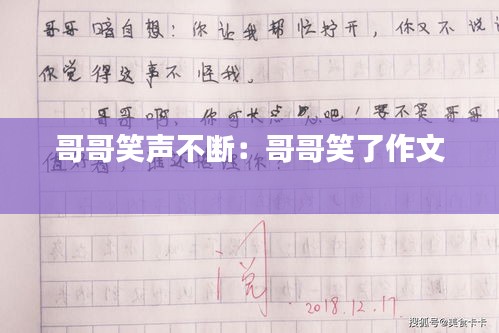 哥哥暗自想：你让我帮忙拧开，你又不说
你觉得这事不怪我。
哥哥啊，你可长点心吧！要不是哥哥
哥哥笑声不断：哥哥笑了作文
值
阅
2018.12.17.
搜狐号@美食卡卡